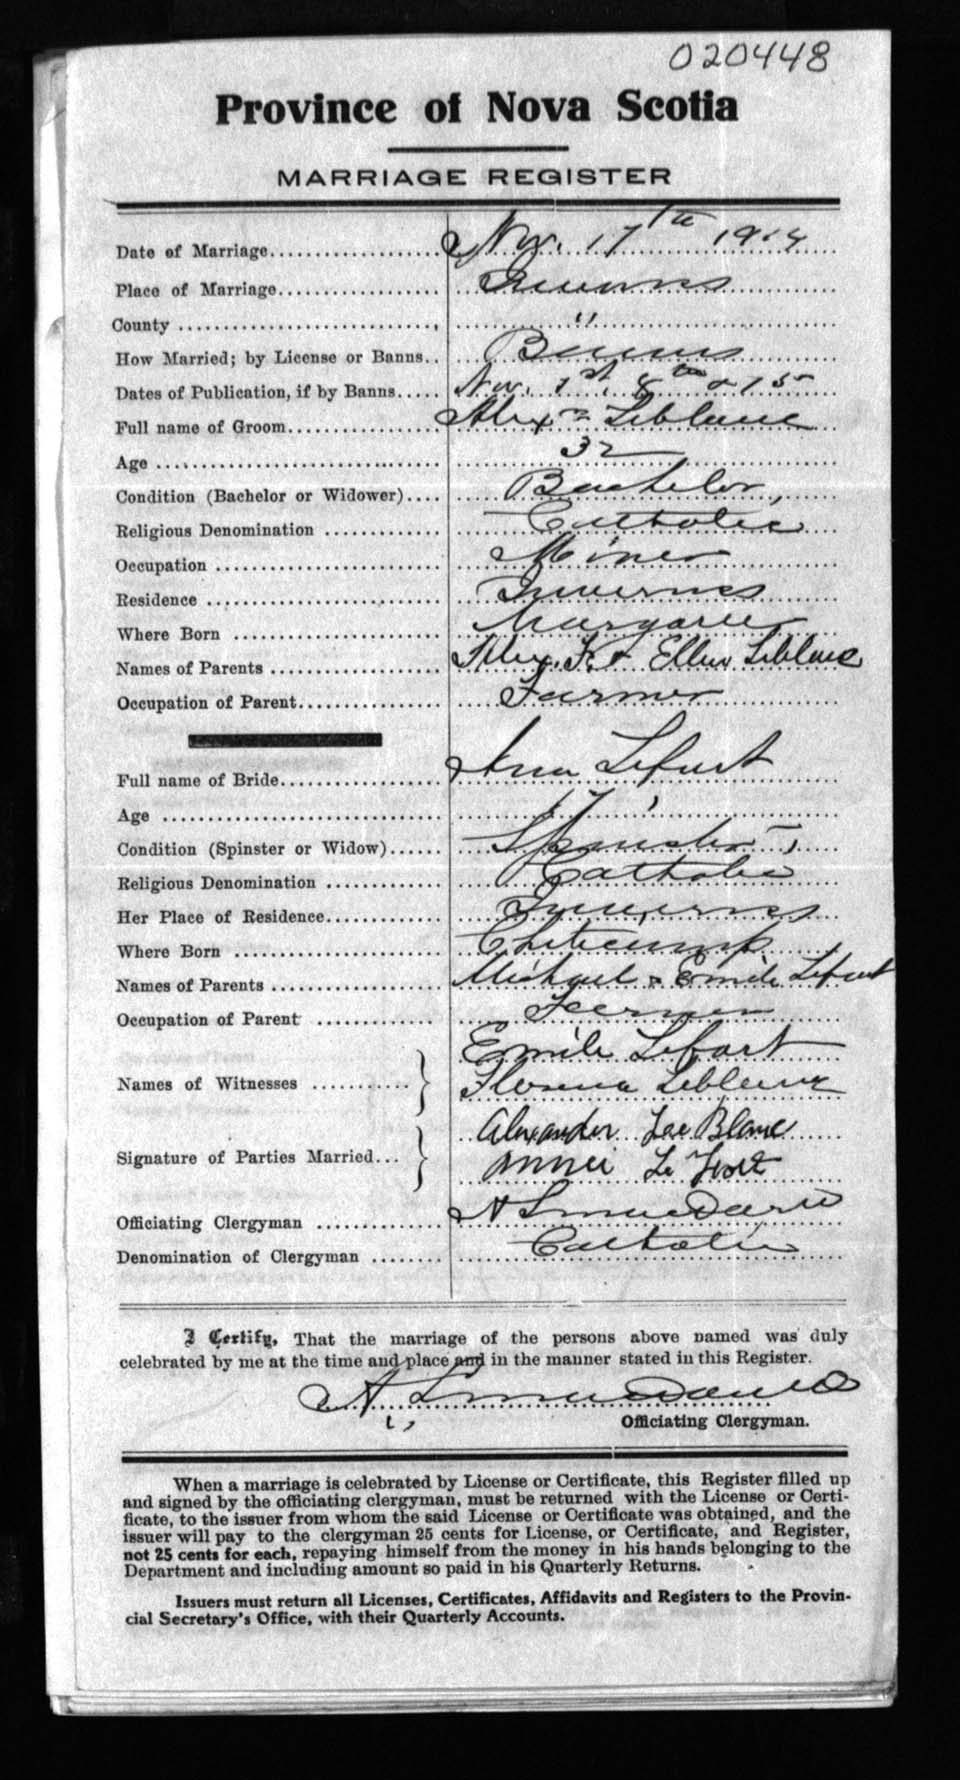 020448
Province of Nova Scotia
MARRIAGE REGISTER
Date of Marriage Nov. 17th 1914
Place of Marriage Inverness
County "
How Married; by License or Banns Banns
Dates of Publication, if by Banns Nov. 1st, 8th & 15
Full name of Groom Alexr Leblanc
Age 32
Condition (Bachelor or Widower) Bachelor
Religious Denomination Catholic
Occupation Miner
Residence Inverness
Where Born Margaree
Names of Parents Alex. F. & Ellen Leblanc
Occupation of Parent Farmer
Full name of Bride Ann Lefort
Age
Condition (Spinster or Widow) Spinster
Religious Denomination Catholic
Her Place of Residence Inverness
Where Born Cheticamp
Names of Parents Michael & Emile Lefort
Occupation of Parent Farmer
Names of Witnesses Emile Lefort
Florena Leblanc
Signature of Parties Married Alexander Lee Blanc
Annei Le Fort
Officiating Clergyman A
Denomination of Clergyman Catholic
I Certify, That the marriage of the persons above named was duly
celebrated by me at the time and place and in the manner stated in this Register.
A.
Officiating Clergyman.
When a marriage is celebrated by License or Certificate, this Register filled up
and signed by the officiating clergyman, must be returned with the License or Certi-
ficate, to the issuer from whom the said License or Certificate was obtained, and the
issuer will pay to the clergyman 25 cents for License, or Certificate, and Register,
not 25 cents for each, repaying himself from the money in his hands belonging to the
Department and including amount so paid in his Quarterly Returns.
Issuers must return all Licenses, Certificates, Affidavits and Registers to the Provin-
cial Secretary's Office, with their Quarterly Accounts.